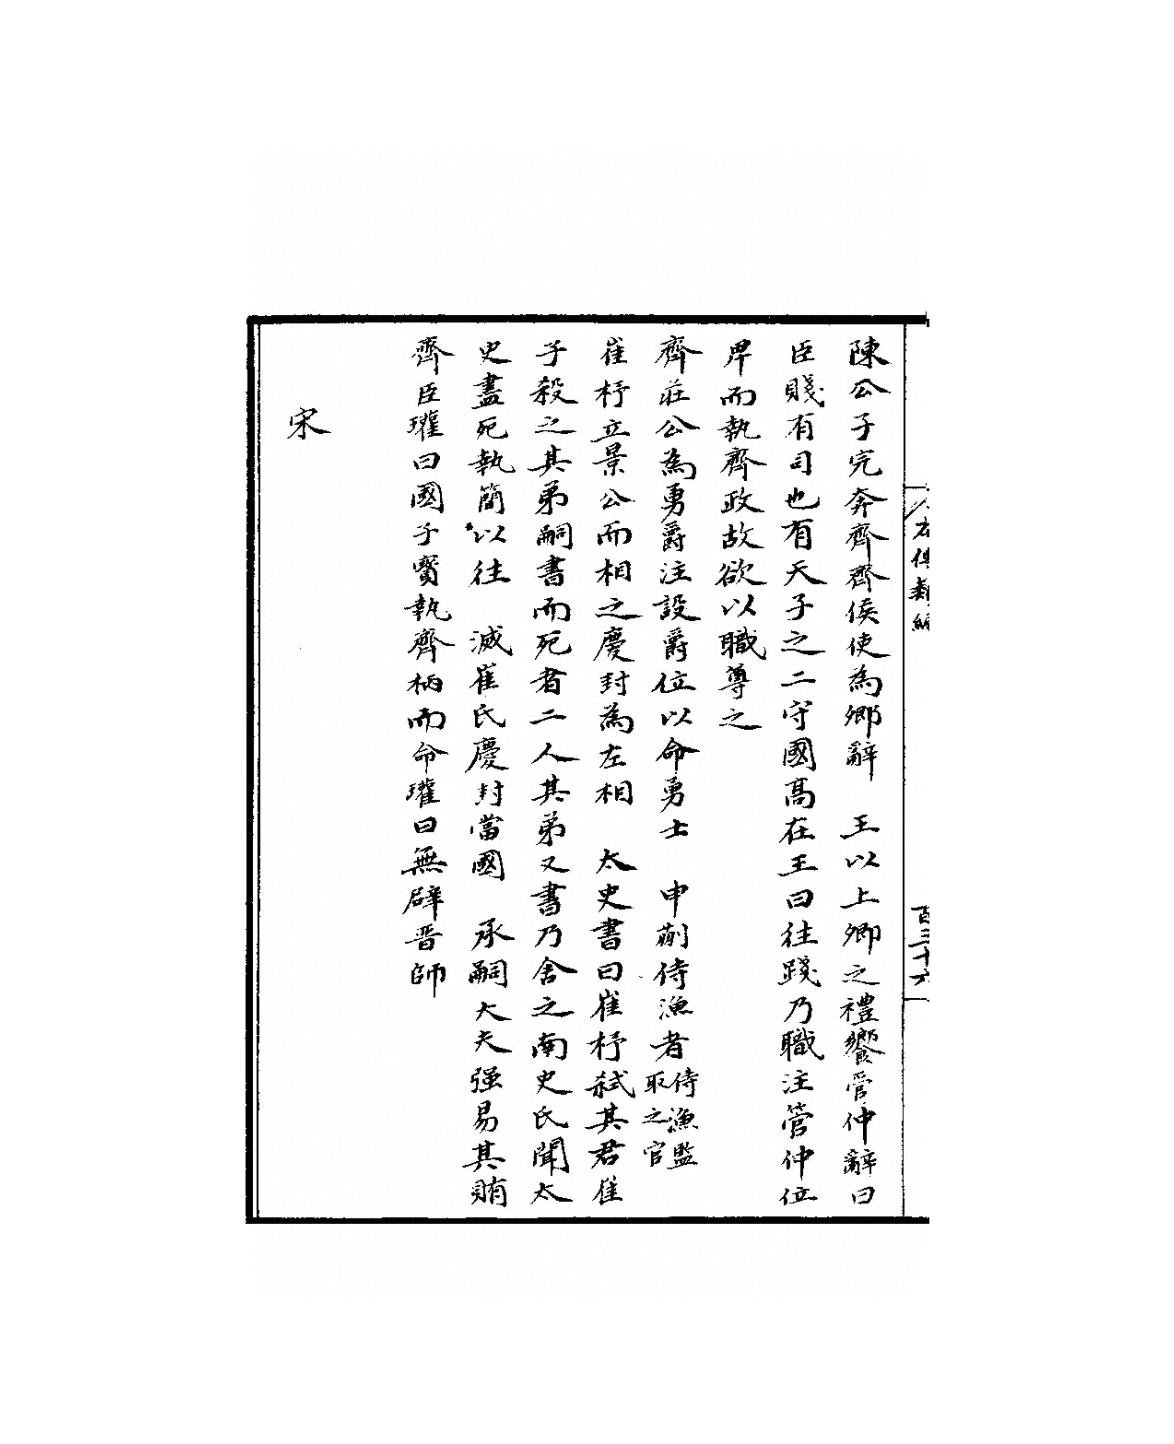 左傳類編
百三十六
陳公子完奔齊齊侯使為卿辭　王以上卿之禮饗管仲辭曰
臣賤有司也有天子之二守國高在王曰往踐乃職注管仲位
卑而執齊政故欲以職尊之
齊莊公為勇爵注設爵位以命勇士　申蒯侍漁者侍漁監取之官
崔杼立景公而相之慶封為左相　太史書曰崔杼弒其君崔
子殺之其弟嗣書而死者二人其弟又書乃舍之南史氏聞太
史盡死執簡以往　滅崔氏慶封當國　承嗣大夫强易其賄
齊臣瓘曰國子實執齊柄而命瓘曰無辟晉師
宋